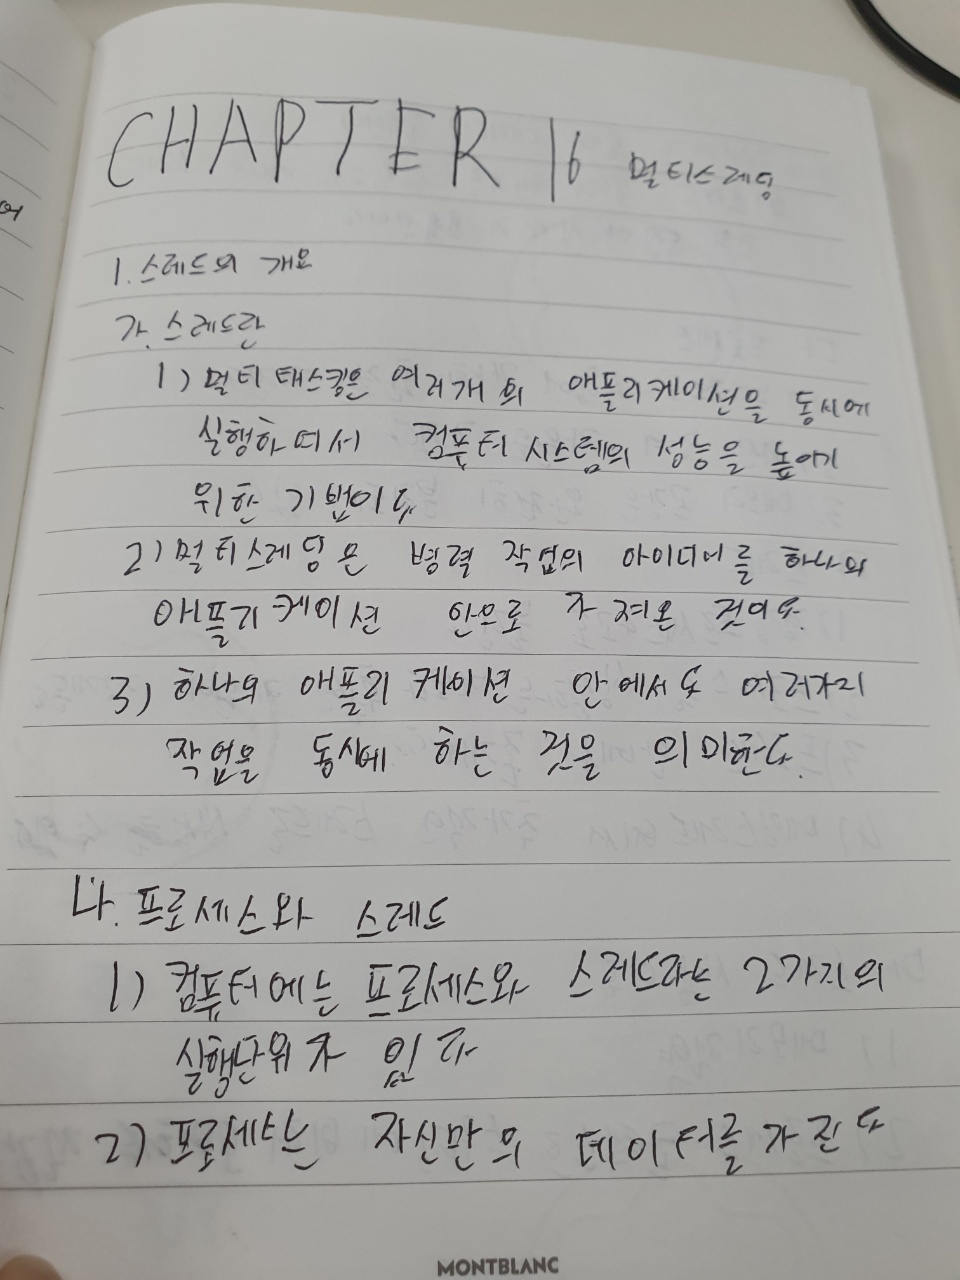 CHAPTER 16 멀티스레딩
1. 스레드의 개요
가. 스레드란
1) 멀티 태스킹은 여러개의 애플리케이션을 동시에
실행하며서 컴퓨터 시스템의 성능을 높이기
위한 기법이다.
2) 멀티스레딩은 병렬 작업의 아이디어를 하나의
애플리케이션 안으로 가져온 것이다.
3) 하나의 애플리케이션 안에서도 여러가지
작업을 동시에 하는 것을 의미한다.
나. 프로세스와 스레드
1) 컴퓨터에는 프로세스와 스레드라는 2가지의
실행단위가 있다
2) 프로세스는 자신만의 데이터를 가진다
MONTBLANC